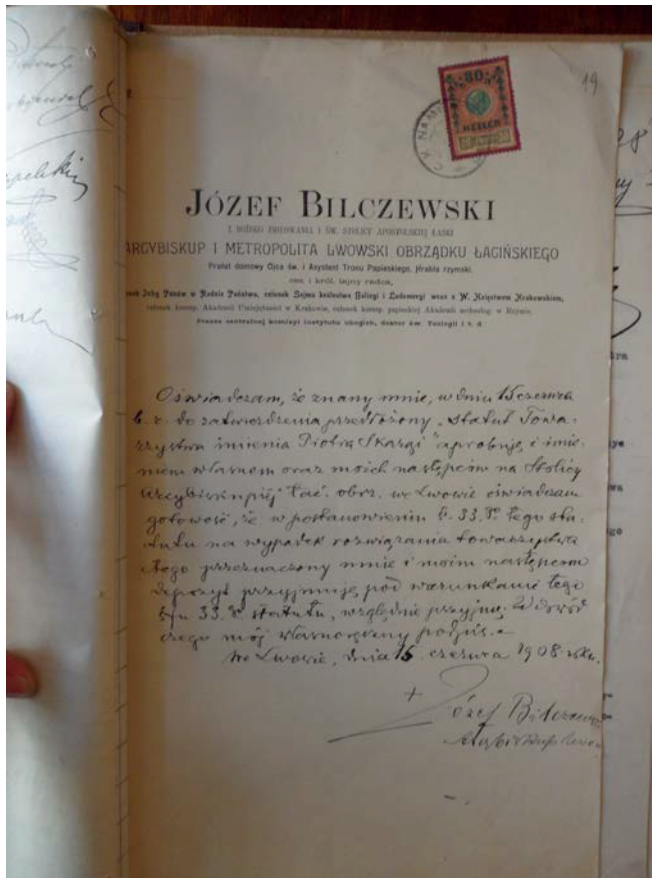 19
30
HELLER
C.K. NAM
JÓZEF BILCZEWSKI
Z BOŻEGO ZMIŁOWANIA I ŚW. STOLICY APOSTOLSKIEJ ŁASKI
ARCYBISKUP I METROPOLITA LWOWSKI OBRZĄDKU ŁACIŃSKIEGO
Prałat domowy Ojca św. i Asystent Tronu Papieskiego, Hrabia rzymski,
ces. i król. tajny radca,
Izby Panów w Radzie Państwa, członek Sejmu królestwa Galicyi i Lodomeryi wraz z W. Księstwem Krakowskiem,
członek koresp. Akademii Umiejętności w Krakowie, członek koresp. papieskiej Akademii archeolog. w Rzymie,
Prezes centralnej komisyi instytutu ubogich, doktor św. Teologii i t. d.
Oświadczam, że znany mnie, w dniu 15 czerwca
b. r. do zatwierdzenia przedłożony „Statut Towa-
rzystwa imienia Piotra Skargi" aprobuję, i imie-
niem własnem oraz moich następców na Stolicy
Arcybiskupiej łać. obrz. we Lwowie oświadczam
gotowość, że w postanowieniu §. 33. tego sta-
tutu na wypadek rozwiązania towarzystwa
tego przeznaczony mnie i moim następcom
depozyt przyjmuję pod warunkami tego
33. statutu, względnie przyjmę. W dowód
czego mój własnoręczny podpis.
We Lwowie, dnia 15 czerwca 1908 roku.
+ Józef Bilczewski